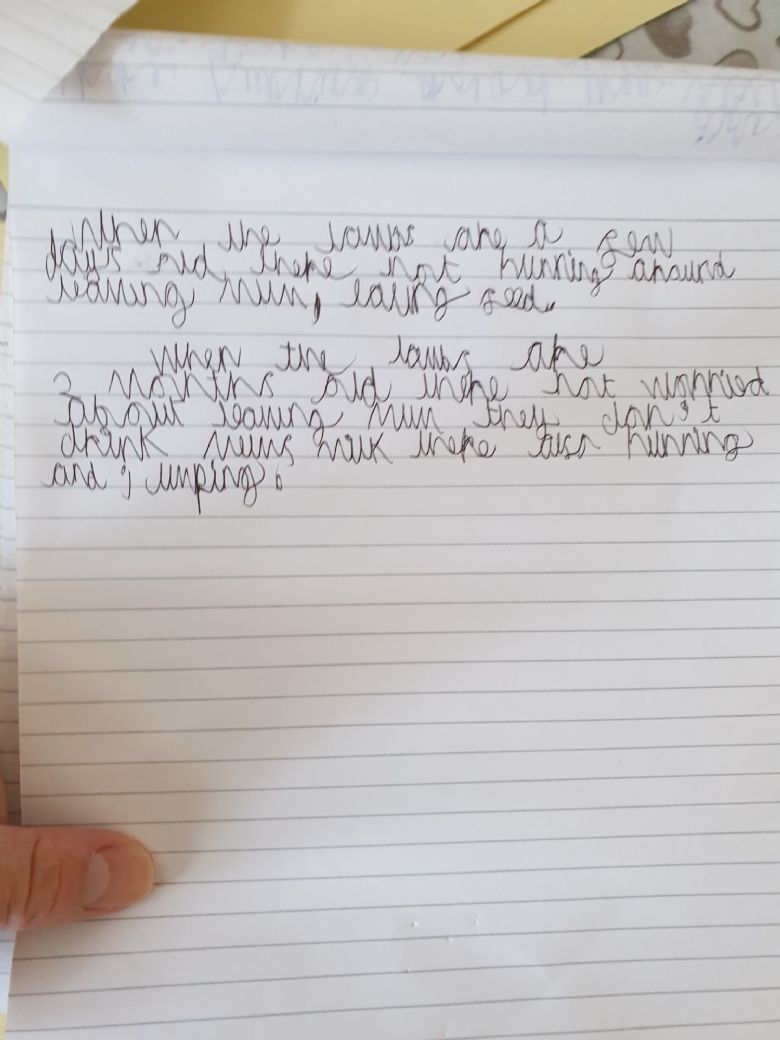 When the lambs are a few
days old there not running around
leaving mum, eating feed.
When the lambs are
3 Months old there not worried
about leaving mum they don't
drink mums milk there just running
and jumping.